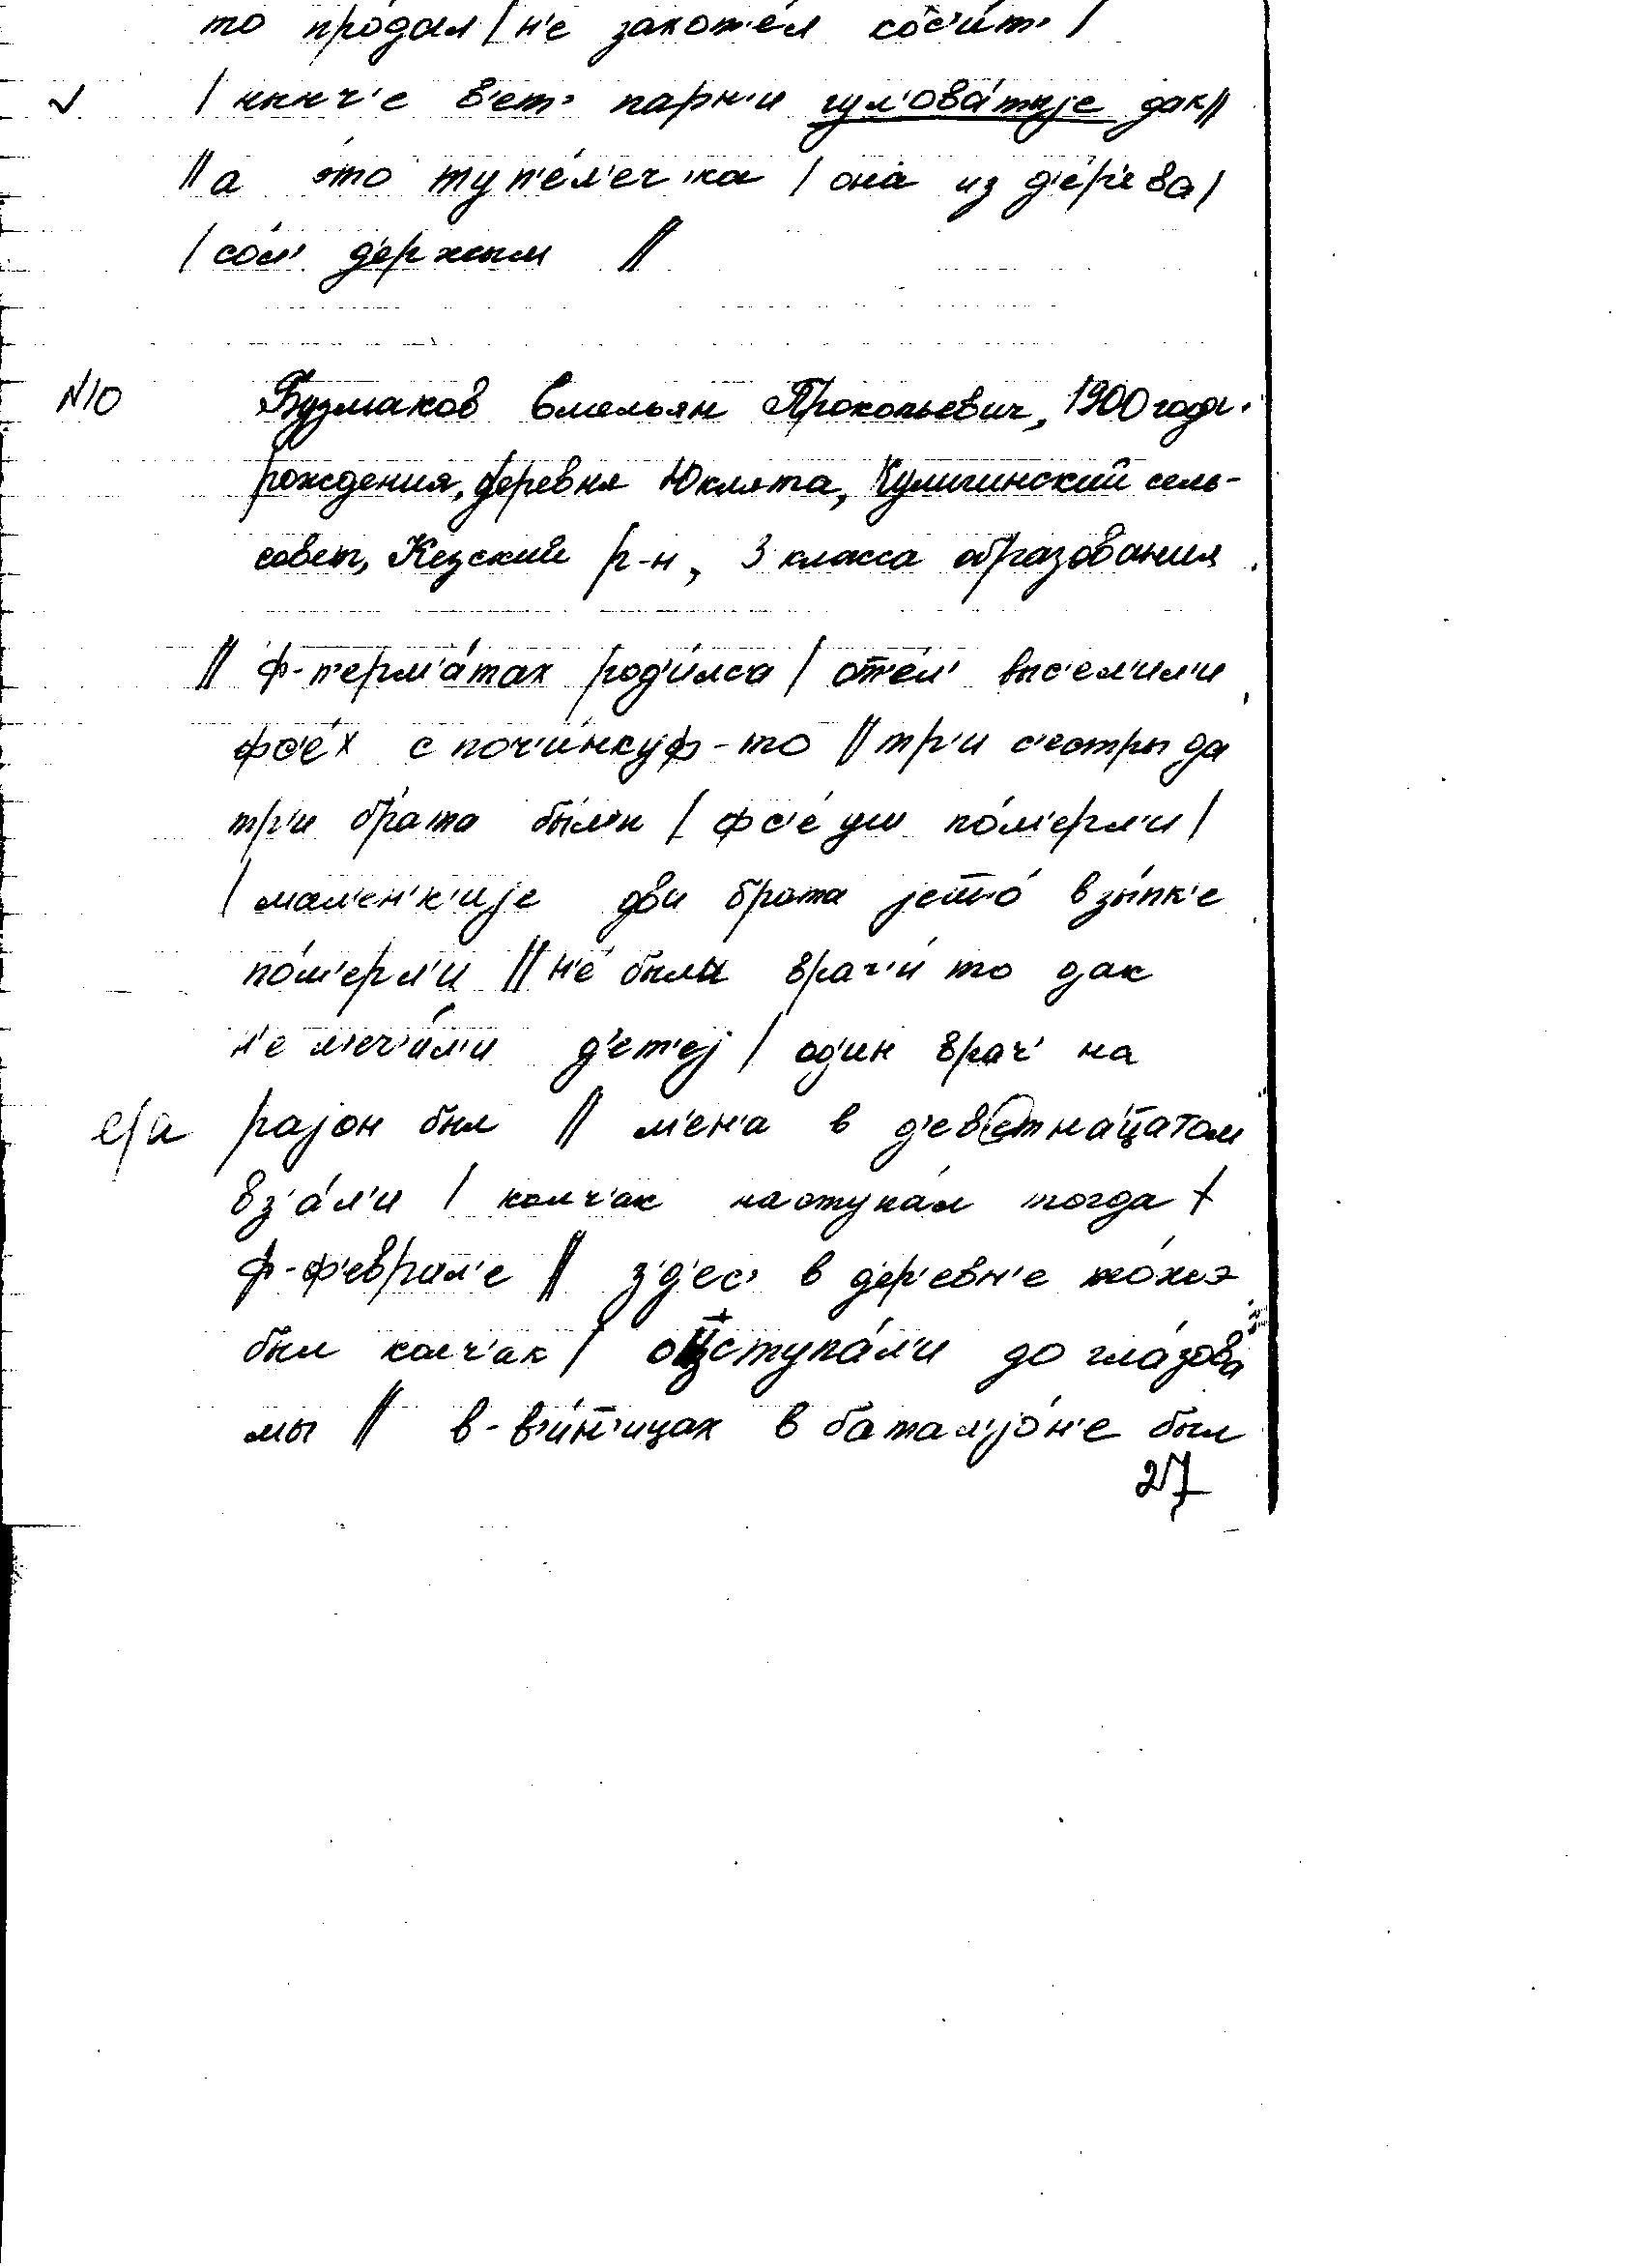 то про́дал / н'е захот'е́л
/ нынч'е в'ет' парн'и гул'ова́тыje дак //
// а э́то туп'е́л'еч'ка / она из д'е́р'ева /
/ со́л' д'ержым //
N10 Бузмаков Емельян Прокопьевич, 1900 года
рождения, деревня Юклята, Кулигинский сель-
совет, Кезский р-н, 3 класса образования.
// ф-п'ерм'а́тах род'и́лса / выс'ел'ил'и
фс'е́х с поч'и́нкуф-то // тр'и с'естры да
тр'и бра́та бы́л'и / фс'е́ уш по́м'ерл'и /
/ мал'ен'к'иje два брата в зы́пк'е
по́м'ерл'и // н'е́ было врач'и́ то дак
н'е л'еч'и́л'и д'ет'еj / од'ин врач' на
е/а раjон был // м'ен'а в д'ев'етна́цатом
вз'а́л'и / колч'ак наступа́л тогда /
ф-ф'еврал'е // з'д'ес' в д'ер'евн'е то́жэ
был колч'ак / оцступа́л'и до гла́зова
мы // в-в'и́н'ицах в батал'jо́н'е был
27